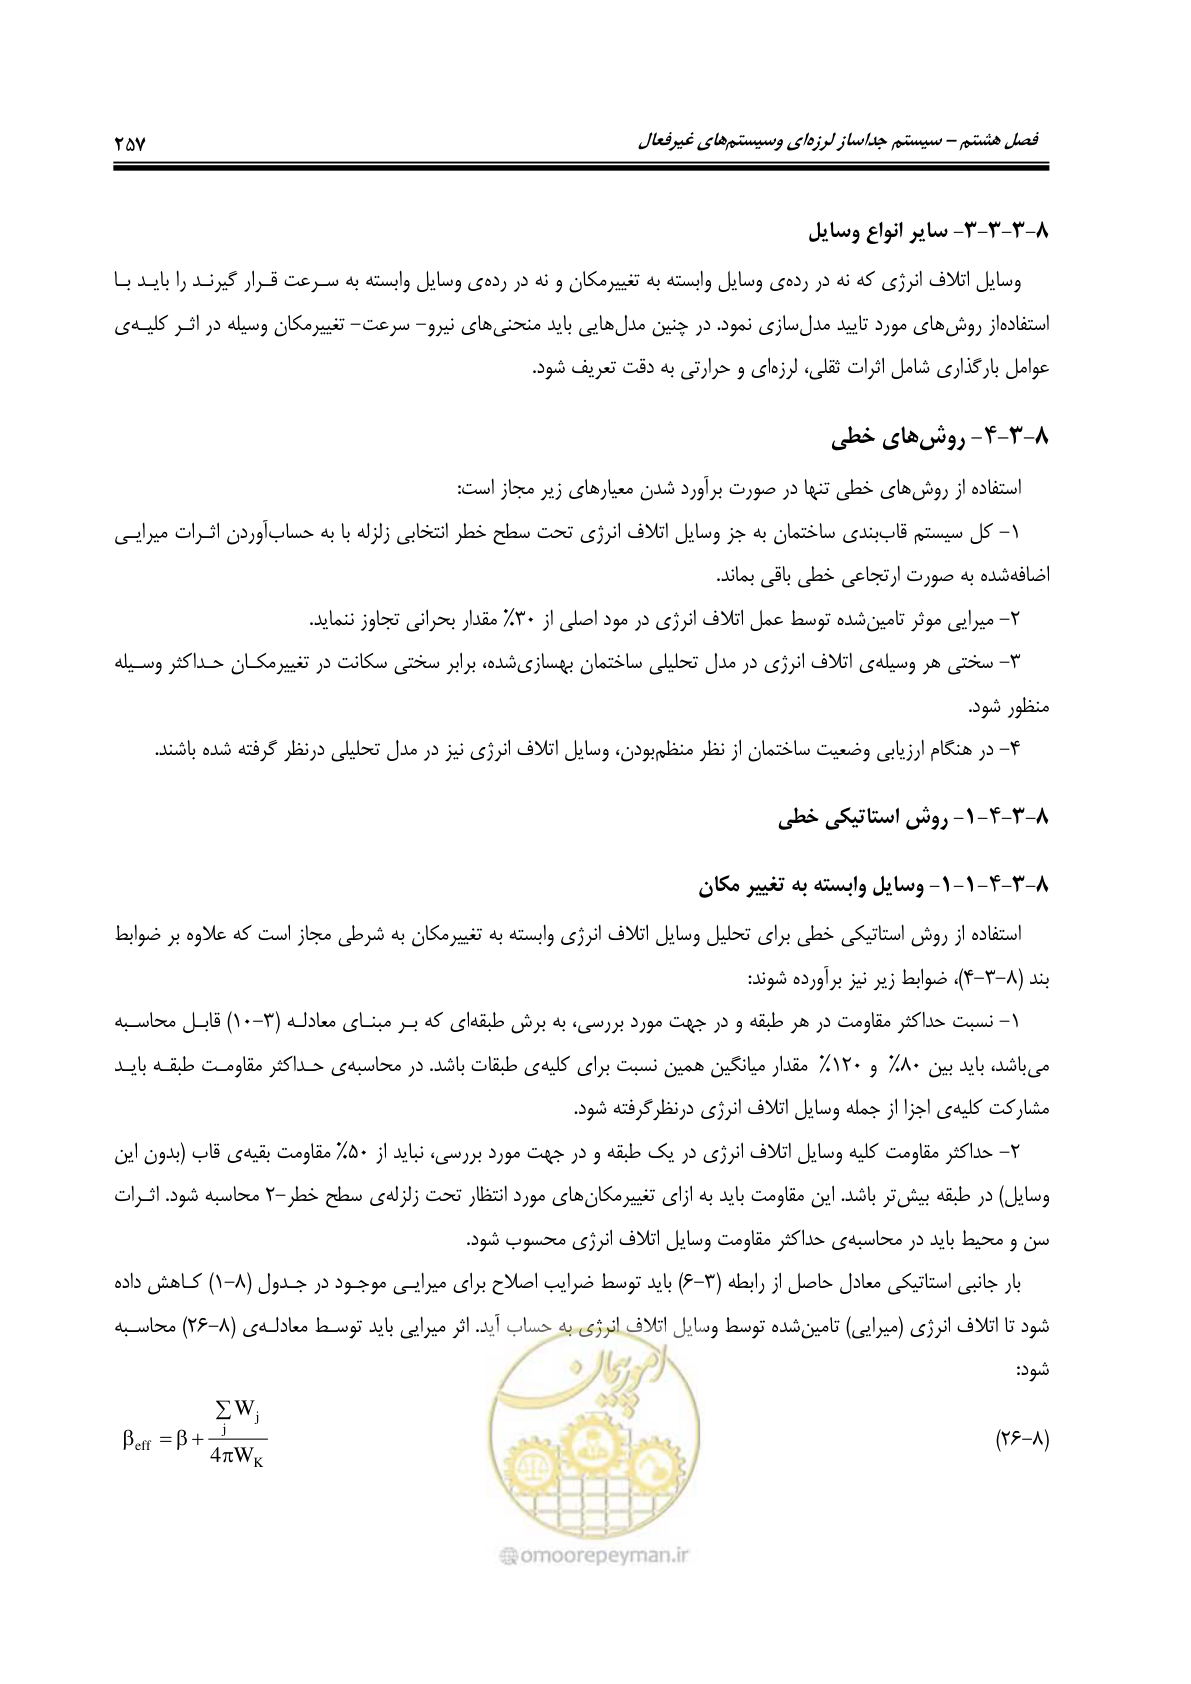 فصل هشتم – سیستم جداساز لرزه‌ای وسیستم‌های غیرفعال ۲۵۷
۸-۳-۳-۳- سایر انواع وسایل
وسایل اتلاف انرژی که نه در رده‌ی وسایل وابسته به تغییرمکان و نه در رده‌ی وسایل وابسته به سرعت قرار گیرند را باید با
استفاده‌از روش‌های مورد تایید مدل‌سازی نمود. در چنین مدل‌هایی باید منحنی‌های نیرو- سرعت- تغییرمکان وسیله در اثر کلیه‌ی
عوامل بارگذاری شامل اثرات ثقلی، لرزه‌ای و حرارتی به دقت تعریف شود.
۸-۳-۴- روش‌های خطی
استفاده از روش‌های خطی تنها در صورت برآورد شدن معیارهای زیر مجاز است:
۱- کل سیستم قاب‌بندی ساختمان به جز وسایل اتلاف انرژی تحت سطح خطر انتخابی زلزله با به حساب‌آوردن اثرات میرایی
اضافه‌شده به صورت ارتجاعی خطی باقی بماند.
۲- میرایی موثر تامین‌شده توسط عمل اتلاف انرژی در مود اصلی از ۳۰٪ مقدار بحرانی تجاوز ننماید.
۳- سختی هر وسیله‌ی اتلاف انرژی در مدل تحلیلی ساختمان بهسازی‌شده، برابر سختی سکانت در تغییرمکان حداکثر وسیله
منظور شود.
۴- در هنگام ارزیابی وضعیت ساختمان از نظر منظم‌بودن، وسایل اتلاف انرژی نیز در مدل تحلیلی درنظر گرفته شده باشند.
۸-۳-۴-۱- روش استاتیکی خطی
۸-۳-۴-۱-۱- وسایل وابسته به تغییر مکان
استفاده از روش استاتیکی خطی برای تحلیل وسایل اتلاف انرژی وابسته به تغییرمکان به شرطی مجاز است که علاوه بر ضوابط
بند (۸-۳-۴)، ضوابط زیر نیز برآورده شوند:
۱- نسبت حداکثر مقاومت در هر طبقه و در جهت مورد بررسی، به برش طبقه‌ای که بر مبنای معادله (۳-۱۰) قابل محاسبه
می‌باشد، باید بین ۸۰٪ و ۱۲۰٪ مقدار میانگین همین نسبت برای کلیه‌ی طبقات باشد. در محاسبه‌ی حداکثر مقاومت طبقه باید
مشارکت کلیه‌ی اجزا از جمله وسایل اتلاف انرژی درنظرگرفته شود.
۲- حداکثر مقاومت کلیه وسایل اتلاف انرژی در یک طبقه و در جهت مورد بررسی، نباید از ۵۰٪ مقاومت بقیه‌ی قاب (بدون این
وسایل) در طبقه بیش‌تر باشد. این مقاومت باید به ازای تغییرمکان‌های مورد انتظار تحت زلزله‌ی سطح خطر-۲ محاسبه شود. اثرات
سن و محیط باید در محاسبه‌ی حداکثر مقاومت وسایل اتلاف انرژی محسوب شود.
بار جانبی استاتیکی معادل حاصل از رابطه (۳-۶) باید توسط ضرایب اصلاح برای میرایی موجود در جدول (۸-۱) کاهش داده
شود تا اتلاف انرژی (میرایی) تامین‌شده توسط وسایل اتلاف انرژی به حساب آید. اثر میرایی باید توسط معادله‌ی (۸-۲۶) محاسبه
شود:
(۸-۲۶) β_eff = β + (∑_j W_j) / (4πW_K)
امور پیمان
@omoorepeyman.ir